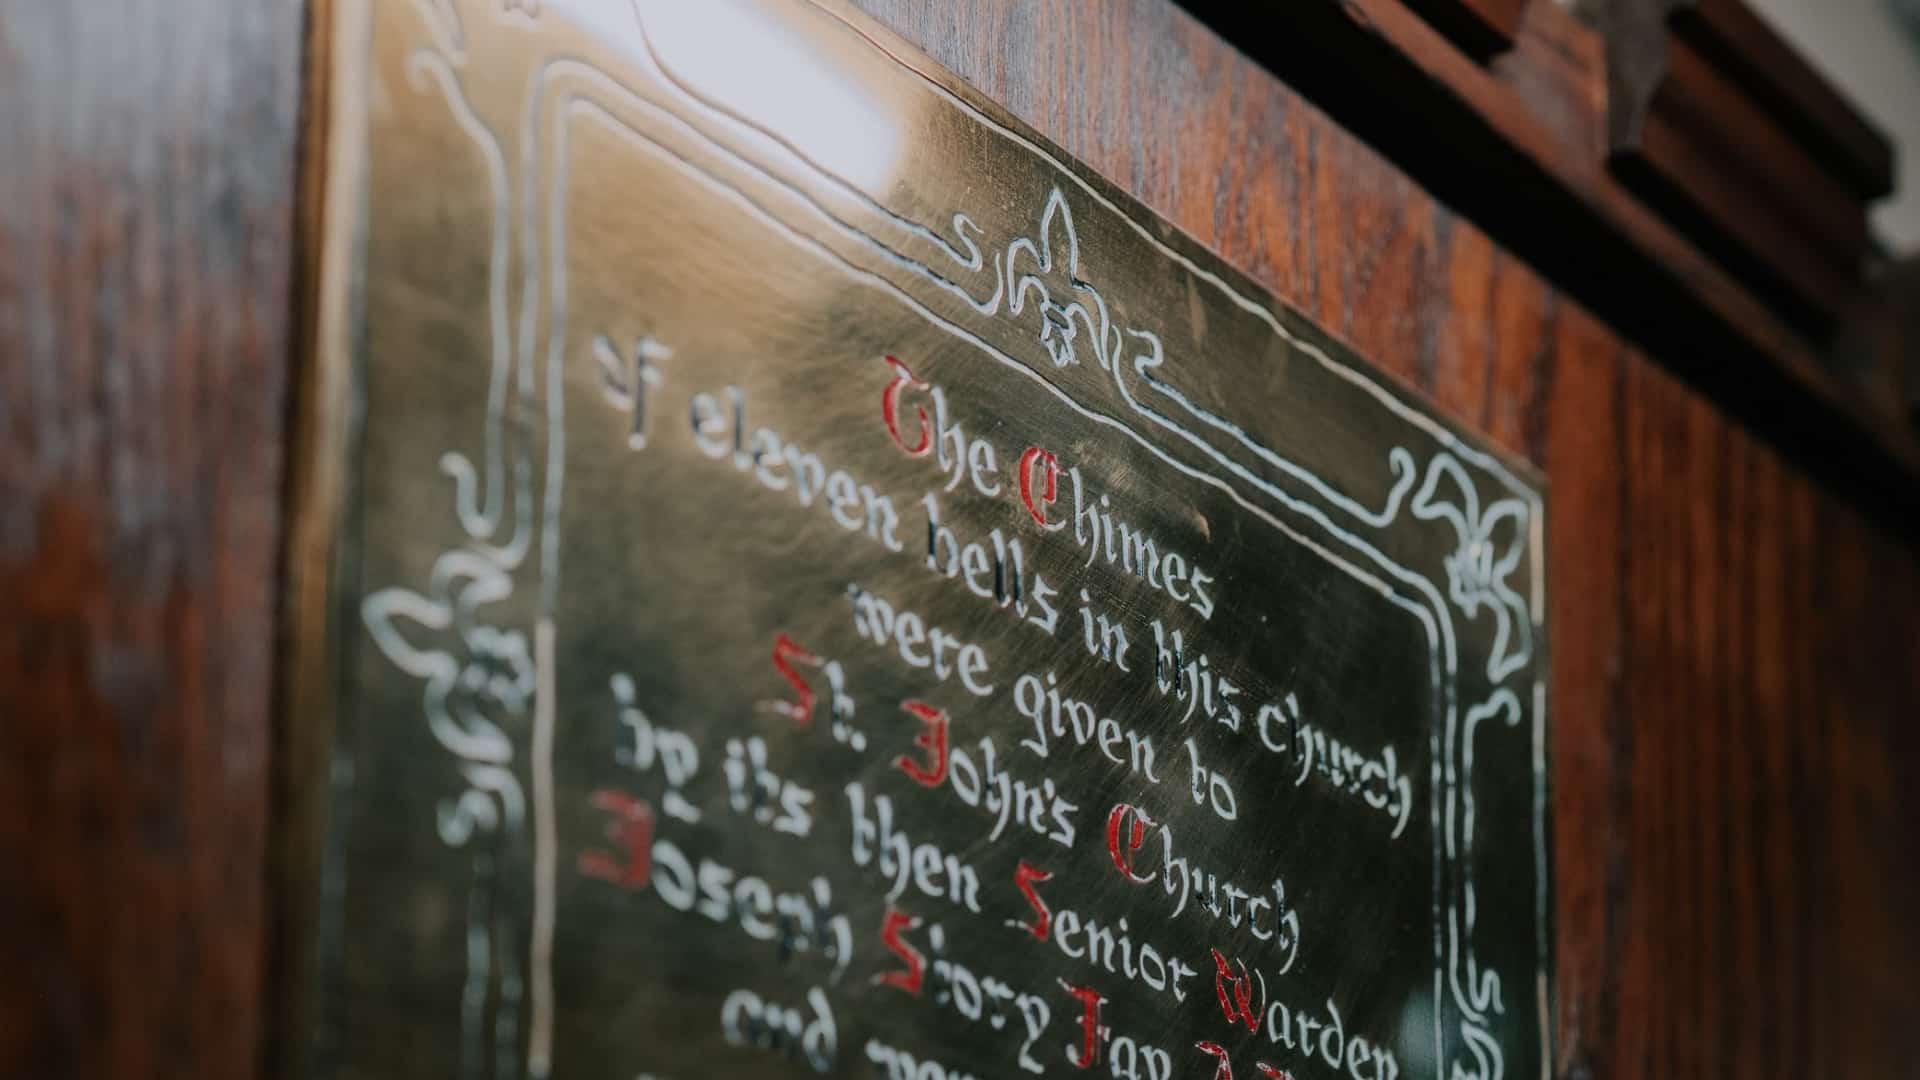 The Chimes
of eleven bells in this church
were given to
St. John's Church
by its then Senior Warden
Joseph Story Fay
and